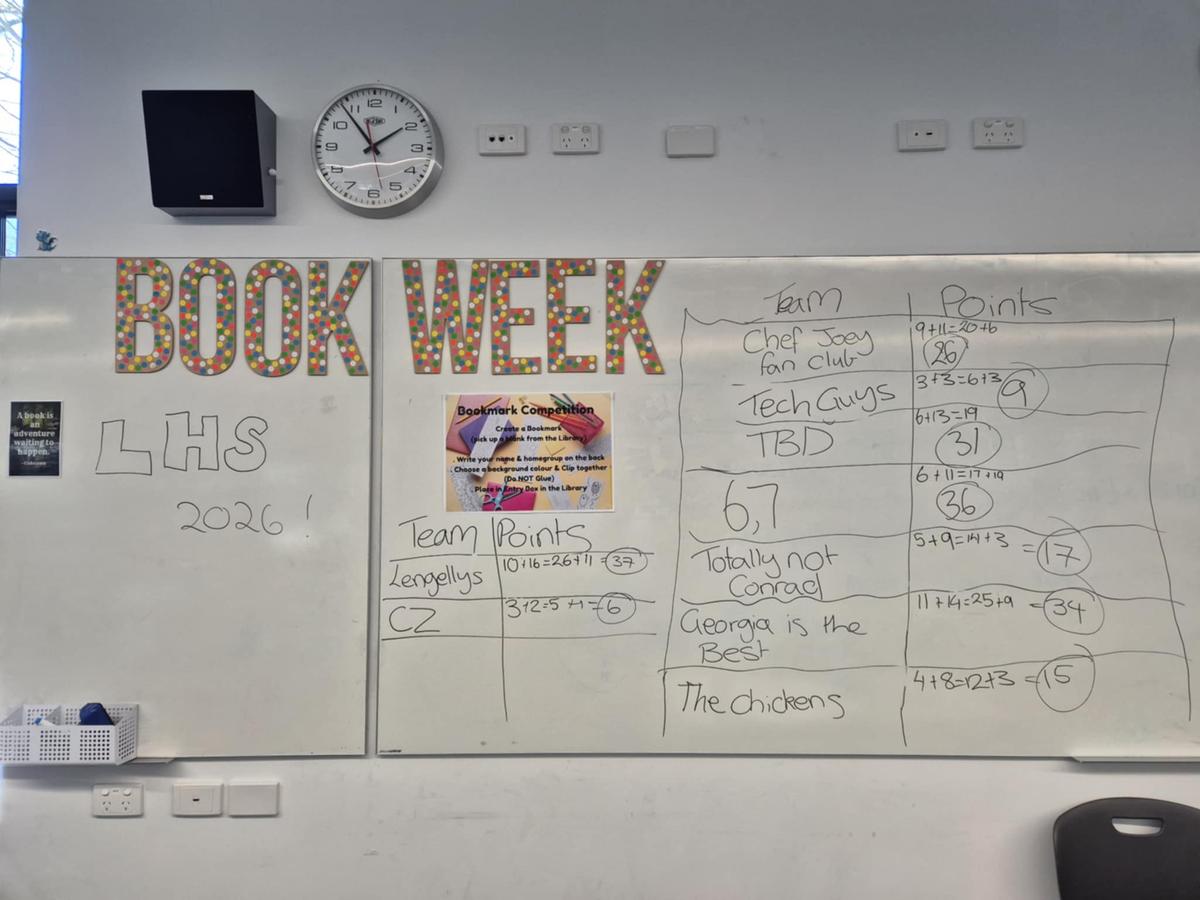 12
11
1
10
2
9
3
8
4
7
5
6
BOOK WEEK
A book is
an
adventure
waiting to
happen.
LHS
2026!
Bookmark Competition
Create a Bookmark
(pick up a blank from the Library)
. Write your name & homegroup on the back
. Choose a background colour & Clip together
(Do NOT Glue)
. Place in Entry Box in the Library
Team Points
Lengellys 10+16=26+11=37
CZ 3+2=5+1=6
Team Points
Chef Joey 9+11=20+6
fan club 26
Tech Guys 3+3=6+3 9
TBD 6+13=19
31
6,7 6+11=17+19
36
Totally not 5+9=14+3=17
Conrad
Georgia is the 11+14=25+9=34
Best
The chickens 4+8=12+3=15